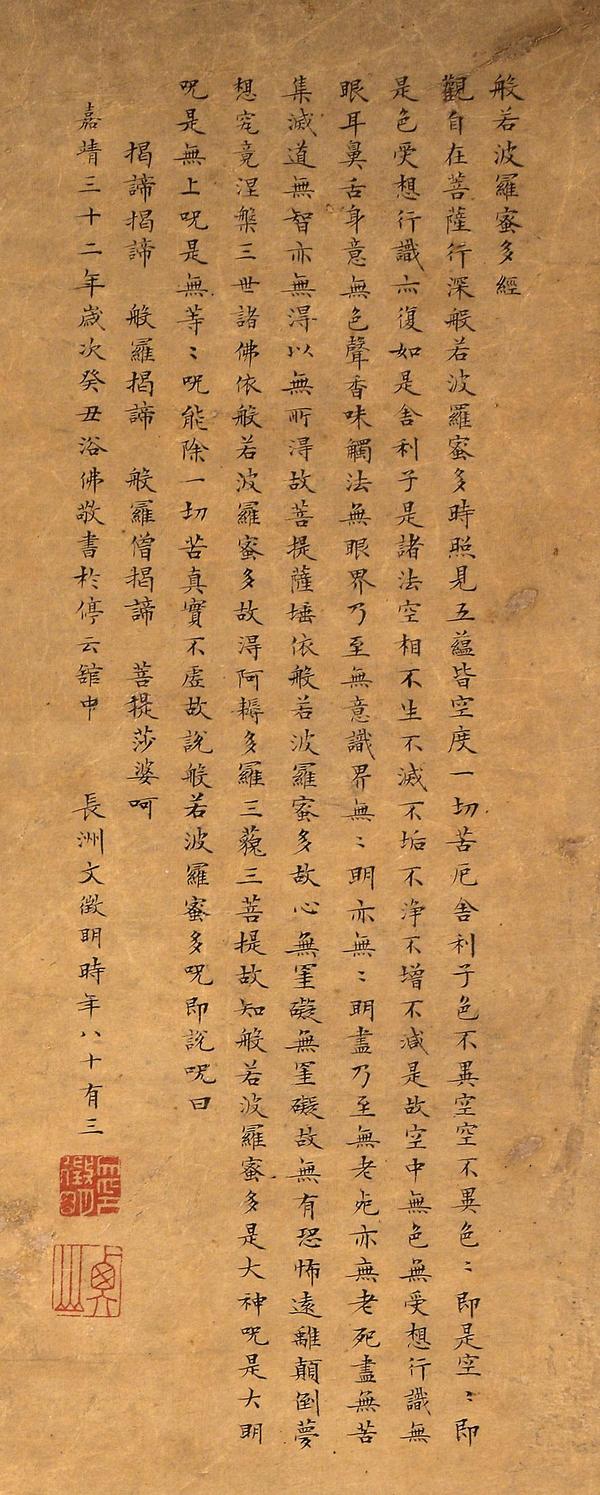 般若波羅蜜多經
觀自在菩薩行深般若波羅蜜多時照見五蘊皆空度一切苦厄舍利子色不異空空不異色〻即是空〻即
是色受想行識亦復如是舍利子是諸法空相不生不滅不垢不淨不增不減是故空中無色無受想行識無
眼耳鼻舌身意無色聲香味觸法無眼界乃至無意識界無〻明亦無〻明盡乃至無老死亦無老死盡無苦
集滅道無智亦無淂以無所淂故菩提薩埵依般若波羅蜜多故心無罣礙無罣礙故無有恐怖遠離顛倒夢
想究竟涅槃三世諸佛依般若波羅蜜多故淂阿耨多羅三藐三菩提故知般若波羅蜜多是大神呪是大明
呪是無上呪是無等〻呪能除一切苦真實不虛故說般若波羅蜜多呪即說呪曰
揭諦揭諦 般羅揭諦 般羅僧揭諦 菩提莎婆呵
嘉靖三十二年歲次癸丑浴佛敬書於停云館中 長洲文徵明時年八十有三